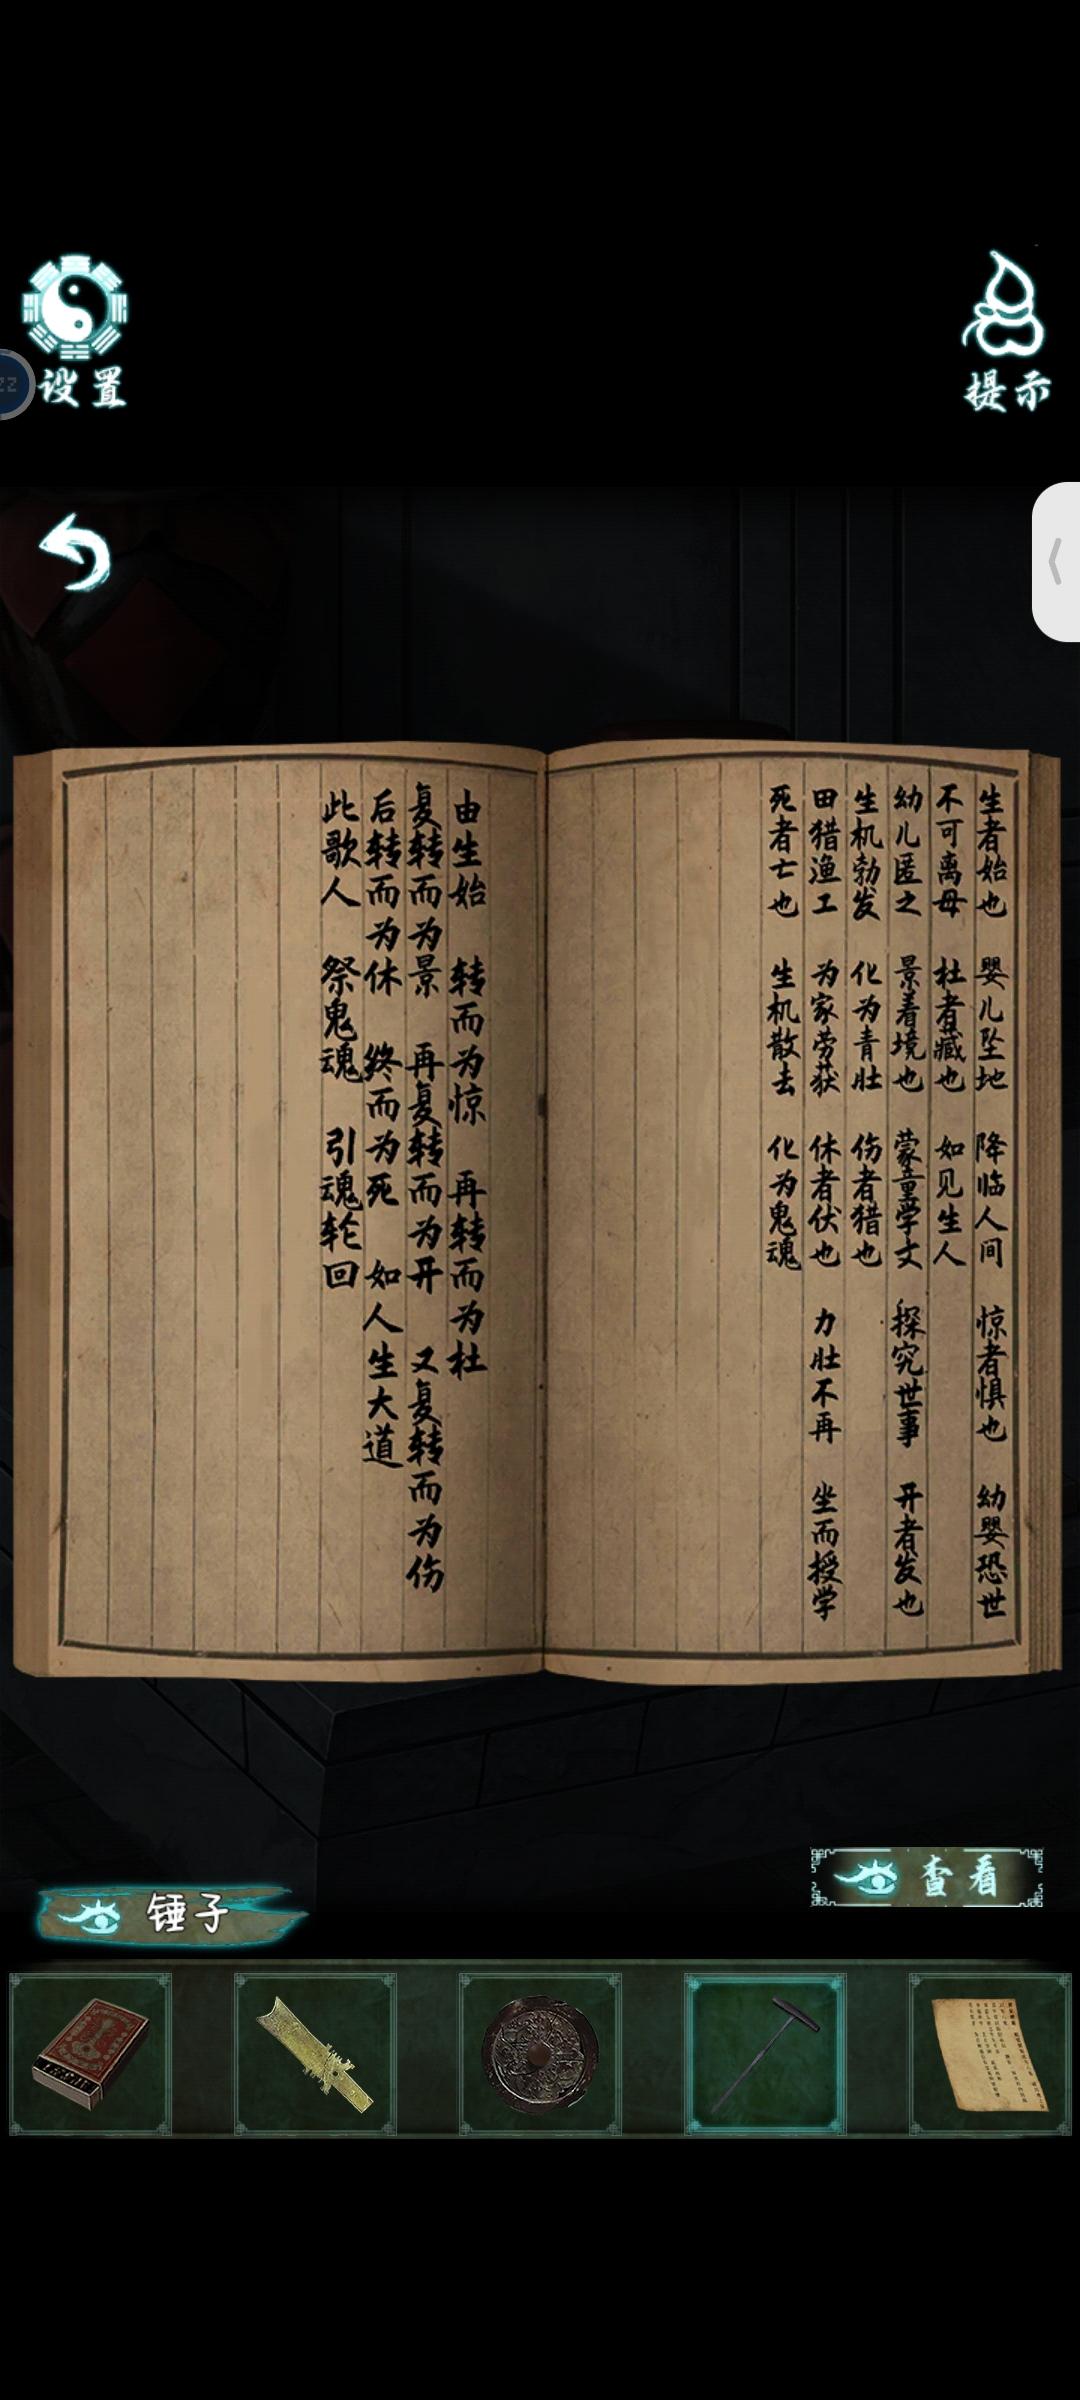 设置
提示
生者始也 婴儿坠地 降临人间 惊者惧也 幼婴恐世
不可离母 杜者藏也 如见生人
幼儿匿之 景着境也 蒙童学文 探究世事 开者发也
生机勃发 化为青壮 伤者猎也
田猎渔工 为家劳获 休者伏也 力壮不再 坐而授学
死者亡也 生机散去 化为鬼魂
由生始 转而为惊 再转而为杜
复转而为景 再复转而为开 又复转而为伤
后转而为休 终而为死 如人生大道
此歌人 祭鬼魂 引魂轮回
查看
锤子